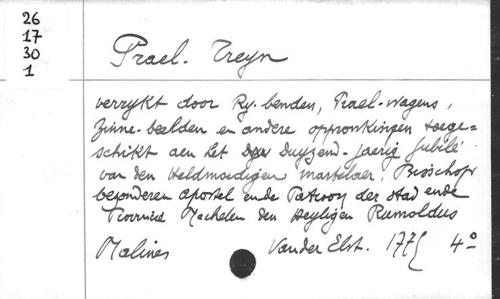 26
17
30
1
Prael. Treyn
verrykt door Ry-benden, Prael-wagens,
Zinne-beelden en andere oppronkingen toege-
schikt aen het Duyzend-jaerig Jubilé
van den Heldmoedigen martelaer, Bisschop
bezonderen apostel ende Patroon der stad ende
Provincie Mechelen den Heyligen Rumoldus
Malines Vander Elst. 1775 4°